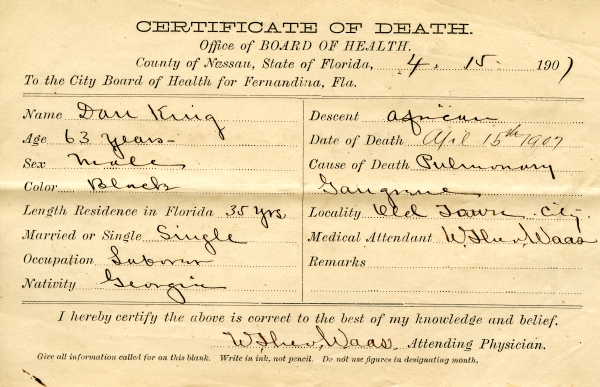 CERTIFICATE OF DEATH.
Office of BOARD OF HEALTH.
County of Nassau, State of Florida, 4. 15. 1907
To the City Board of Health for Fernandina, Fla.
Name Dan King
Age 63 years
Sex Male
Color Black
Length Residence in Florida 35 yrs
Married or Single Single
Occupation Laborer
Nativity Georgia
Descent African
Date of Death April 15th 1907
Cause of Death Pulmonary
Gangrene
Locality Old Town City.
Medical Attendant Waas
Remarks
I hereby certify the above is correct to the best of my knowledge and belief.
Waas Attending Physician.
Give all information called for on this blank. Write in ink, not pencil. Do not use figures in designating month.